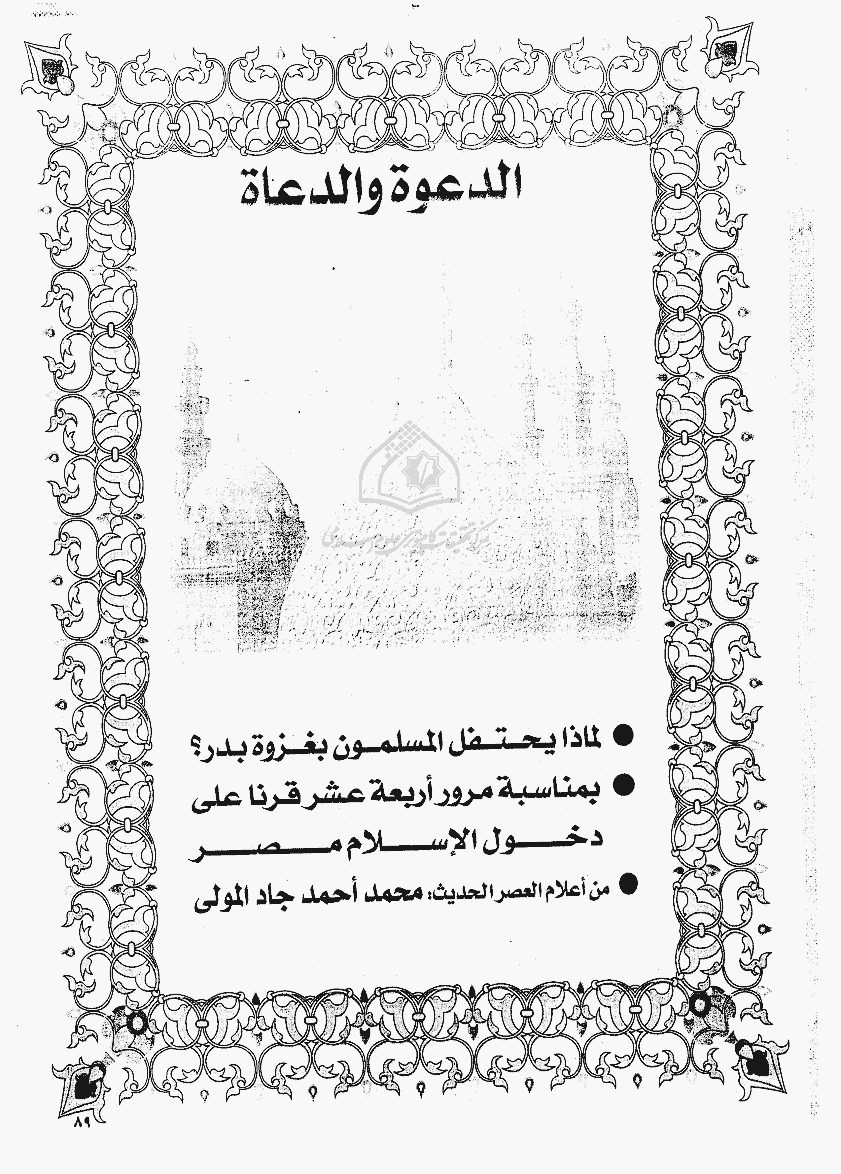 الدعوة والدعاة
مركز تحقيقات كامپيوترى علوم اسلامى
● لماذا يحتفل المسلمون بغزوة بدر؟
● بمناسبة مرور أربعة عشر قرنا على
دخول الإسلام مصر
● من أعلام العصر الحديث: محمد أحمد جاد المولى
٨٩